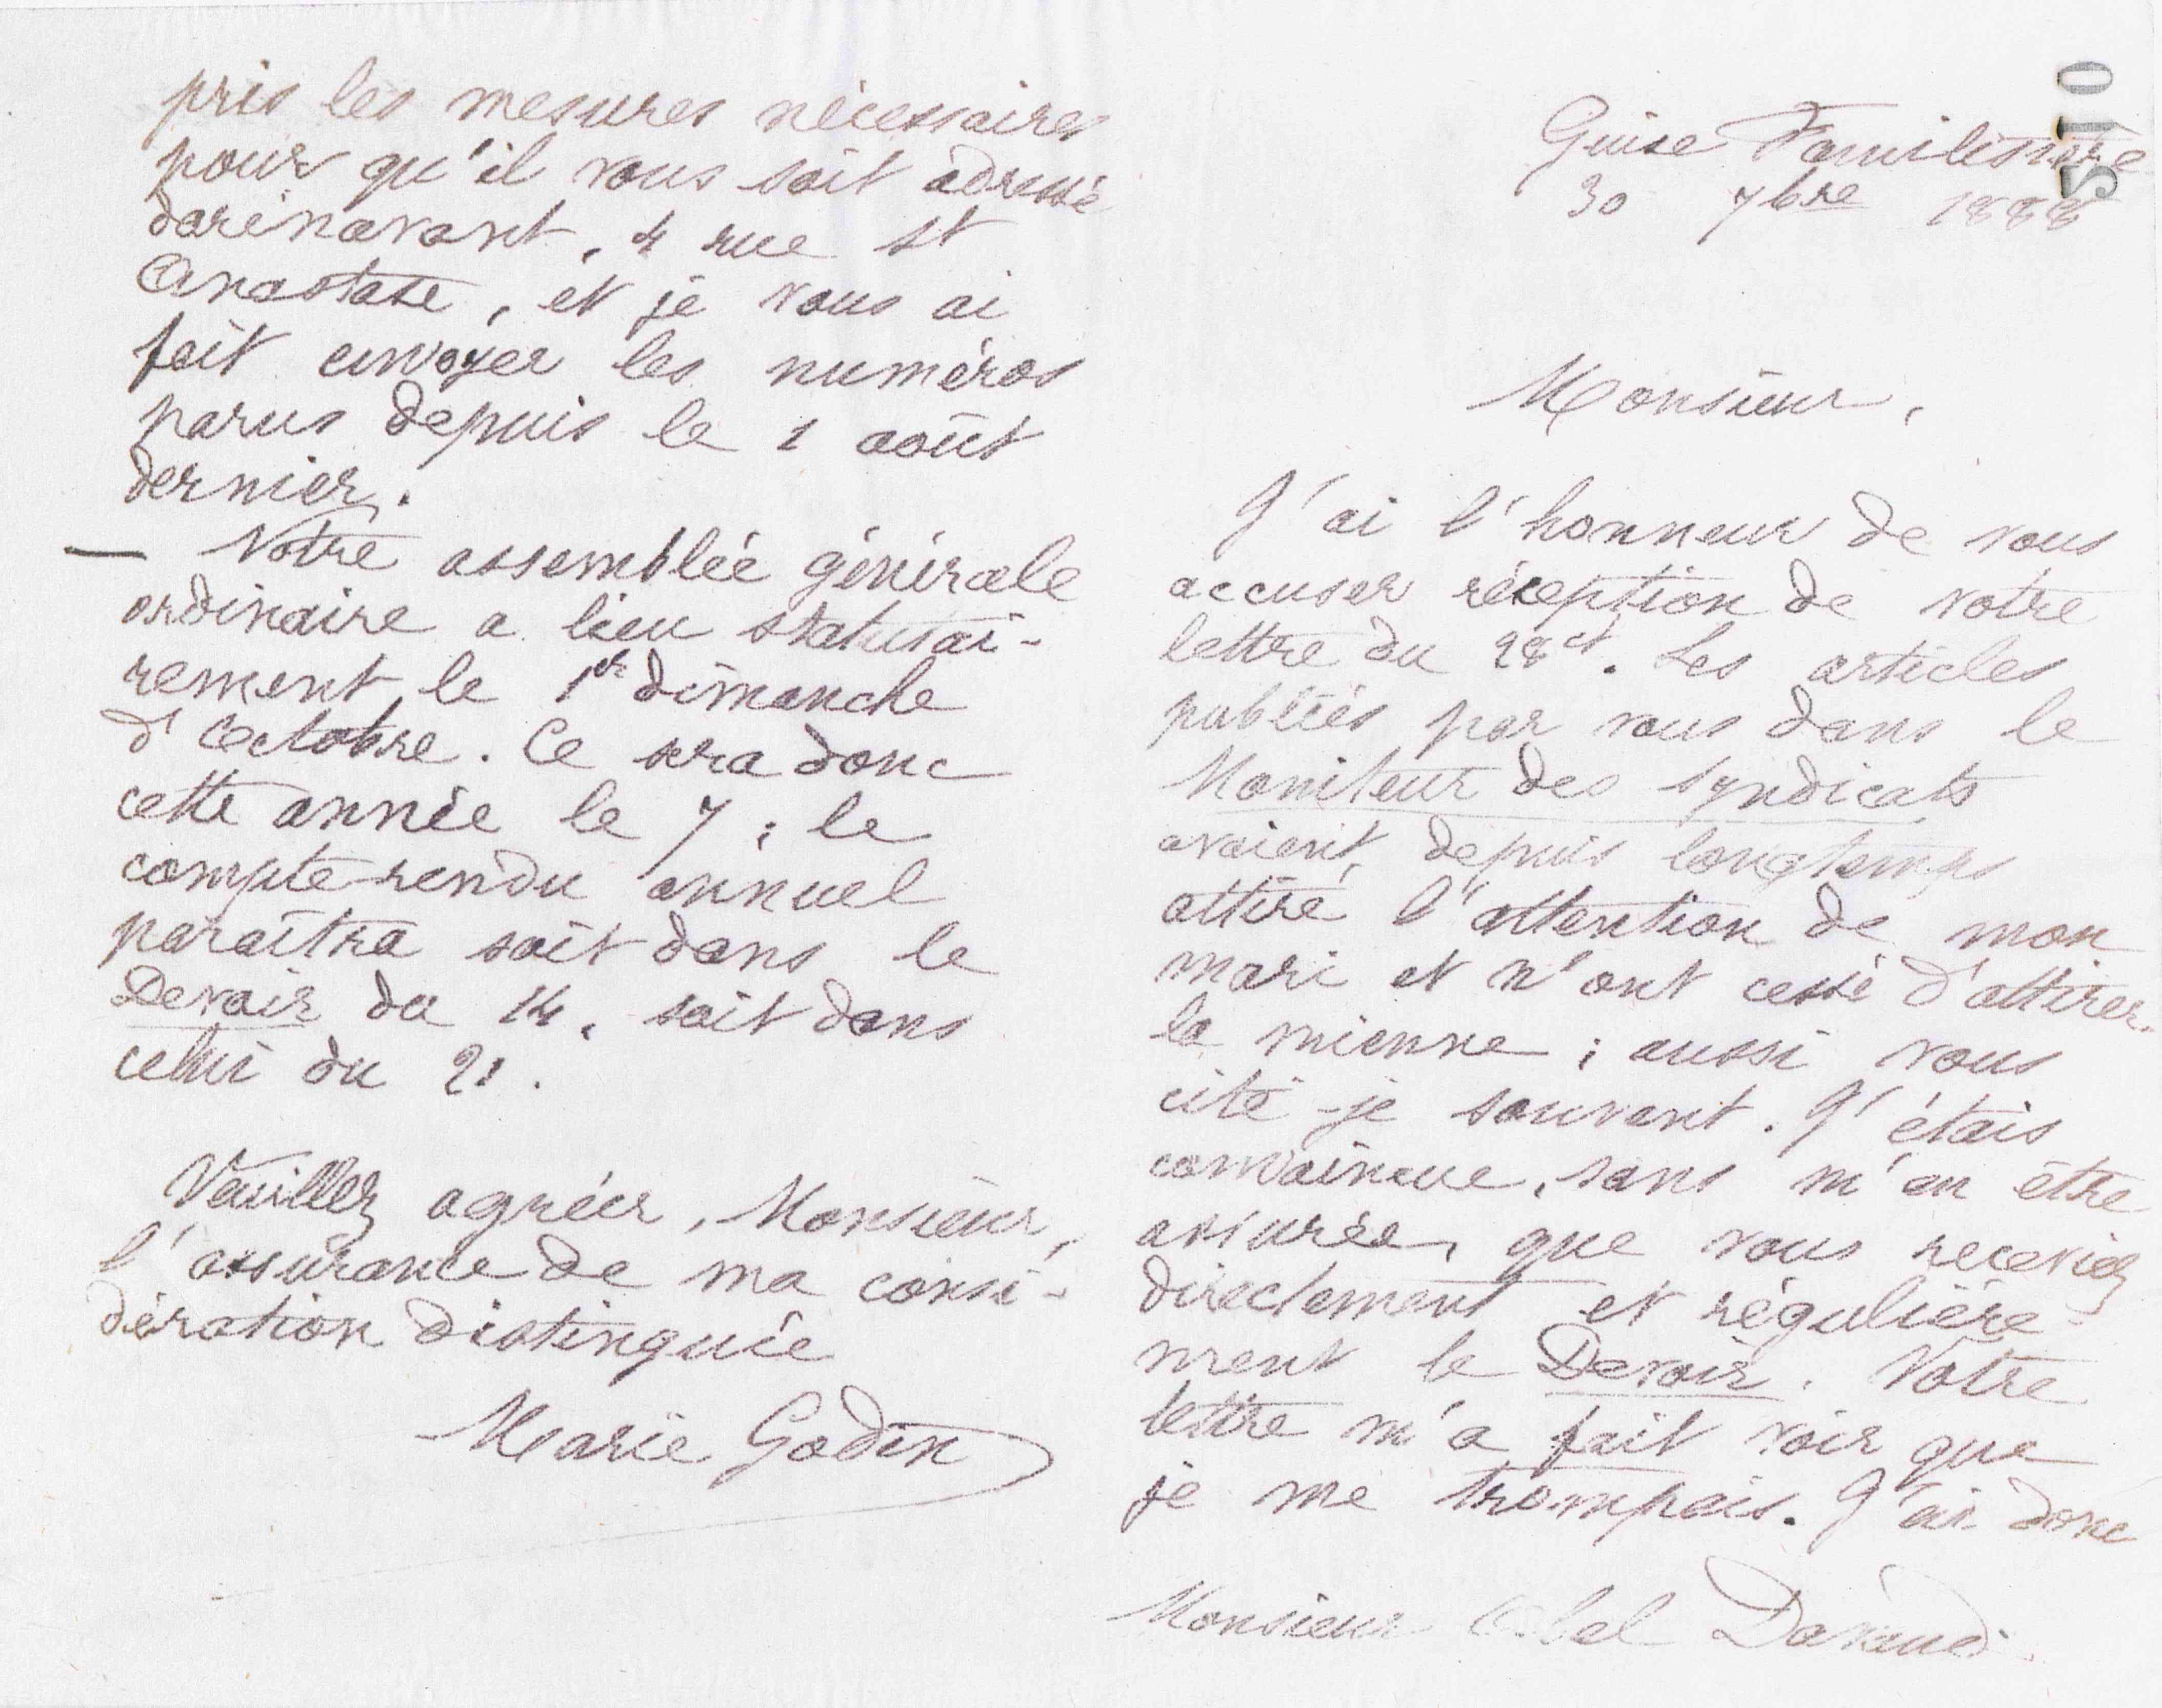 510
Guise Familistère
30 7bre 1888
Monsieur,
J'ai l'honneur de vous
accuser réception de votre
lettre du 28 ct. Les articles
publiés par vous dans le
Moniteur des syndicats
avaient, depuis longtemps
attiré l'attention de mon
mari et n'ont cessé d'attirer
la mienne ; aussi vous
cité-je souvent. J'étais
convaincue, sans m'en être
assurée, que vous receviez
directement et régulière-
ment le Devoir. Votre
lettre m'a fait voir que
je me trompais. J'ai donc
Monsieur Abel Davaud
pris les mesures nécessaires
pour qu'il vous soit adressé
dorénavant, 4 rue St
Anastase, et je vous ai
fait envoyer les numéros
parus depuis le 1 août
dernier.
— Notre assemblée générale
ordinaire a lieu statutai-
rement le 1er dimanche
d'Octobre. Ce sera donc
cette année le 7 ; le
compte-rendu annuel
paraîtra soit dans le
Devoir du 14, soit dans
celui du 21.
Veuillez agréer, Monsieur,
l'assurance de ma consi-
dération distinguée
Marie Godin